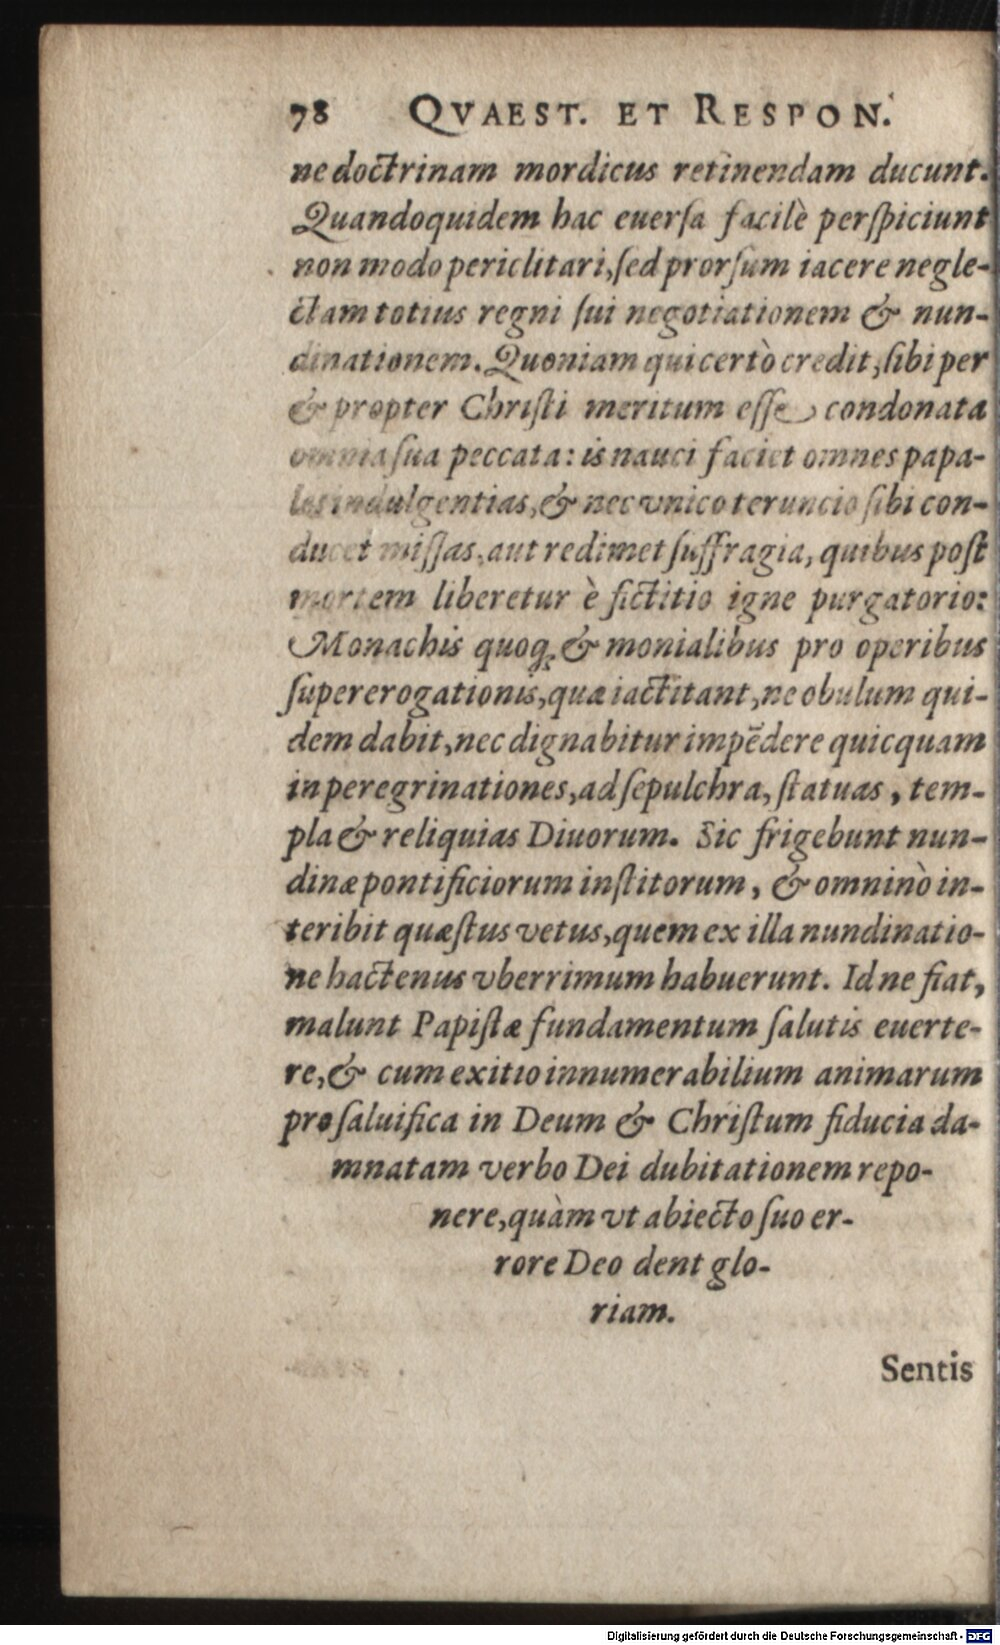 78 QVAEST. ET RESPON.
ne doctrinam mordicus retinendam ducunt.
Quandoquidem hac euerſa facilè perſpiciunt
non modo periclitari, ſed prorſum iacere negle-
ctam totius regni ſui negotiationem & nun-
dinationem. Quoniam qui certò credit, ſibi per
& propter Chriſti meritum eſſe condonata
omnia ſua peccata: is nauci faciet omnes papa-
les indulgentias, & nec vnico teruncio ſibi con-
ducet miſſas, aut redimet ſuffragia, quibus poſt
mortem liberetur è fictitio igne purgatorio:
Monachis quoq; & monialibus pro operibus
ſupererogationis, quæ iactitant, ne obulum qui-
dem dabit, nec dignabitur impēdere quicquam
in peregrinationes, ad ſepulchra, ſtatuas, tem-
pla & reliquias Diuorum. Sic frigebunt nun-
dinæ pontificiorum inſtitorum, & omninò in-
teribit quæſtus vetus, quem ex illa nundinatio-
ne hactenus vberrimum habuerunt. Id ne fiat,
malunt Papiſtæ fundamentum ſalutis euerte-
re, & cum exitio innumerabilium animarum
pro ſaluifica in Deum & Chriſtum fiducia da-
mnatam verbo Dei dubitationem repo-
nere, quàm vt abiecto ſuo er-
rore Deo dent glo-
riam.
Sentis
Digitalisierung gefördert durch die Deutsche Forschungsgemeinschaft - DFG